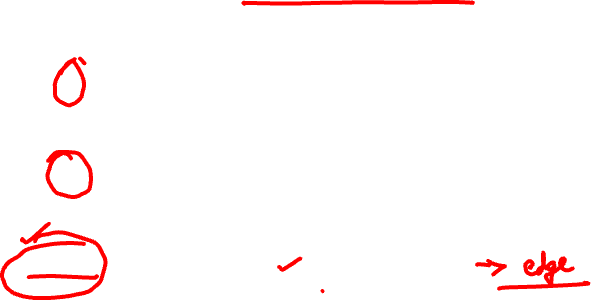 → edge